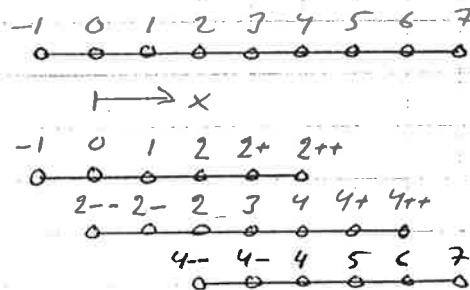 -1 0 1 2 3 4 5 6 7
x
-1 0 1 2 2+ 2++
2-- 2- 2 3 4 4+ 4++
4-- 4- 4 5 6 7